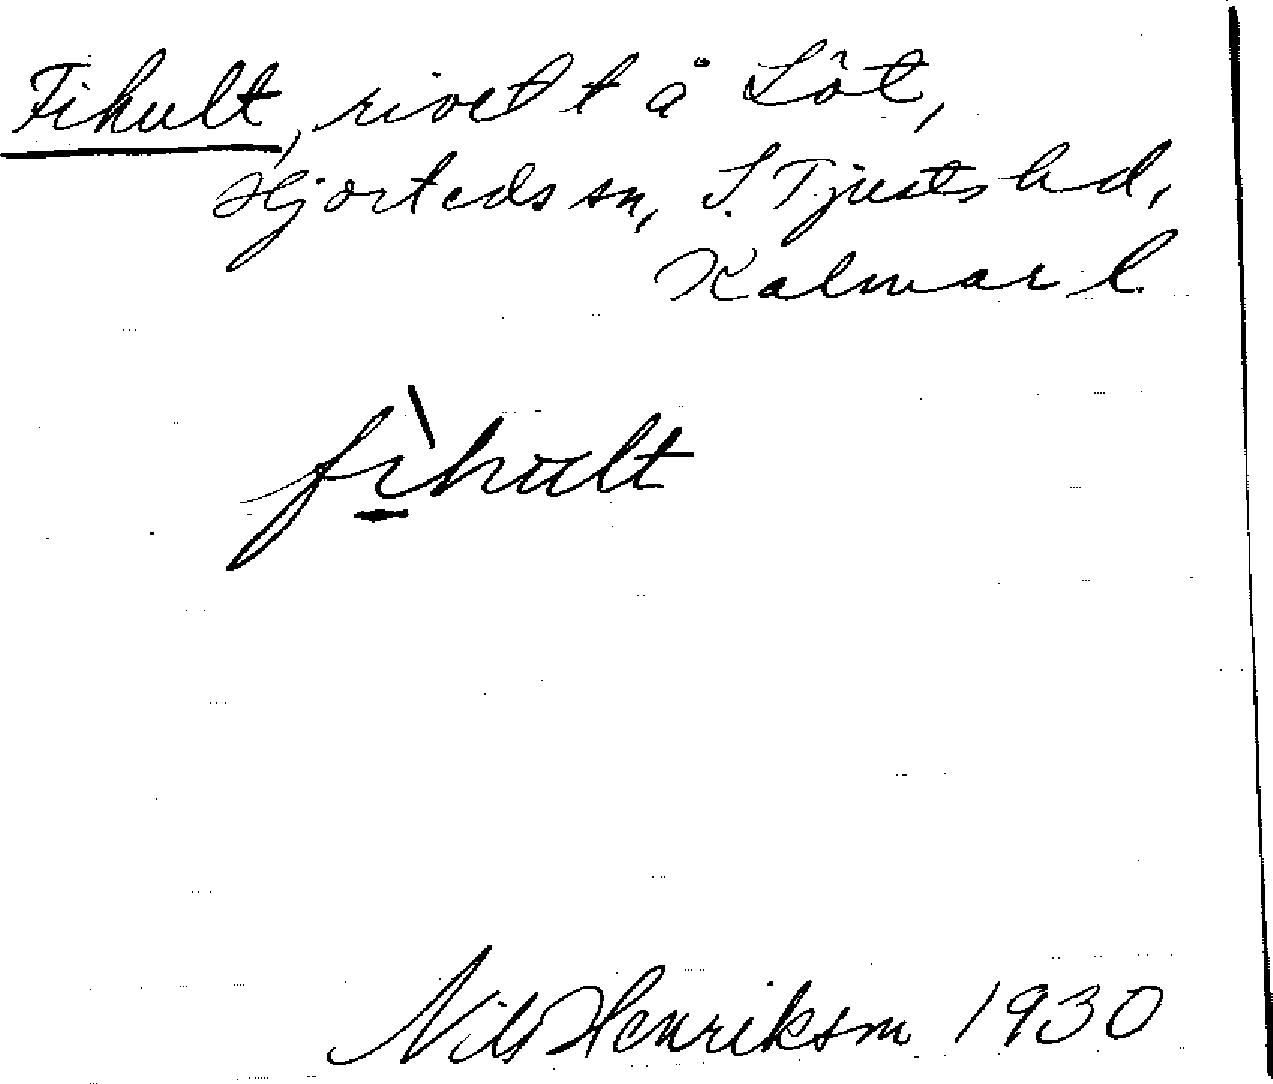 Fihult, rivet t å Löt,
Hjorteds sn, S. Tjusts hd,
Kalmar l.
fìhult
Nils Henriksm 1930